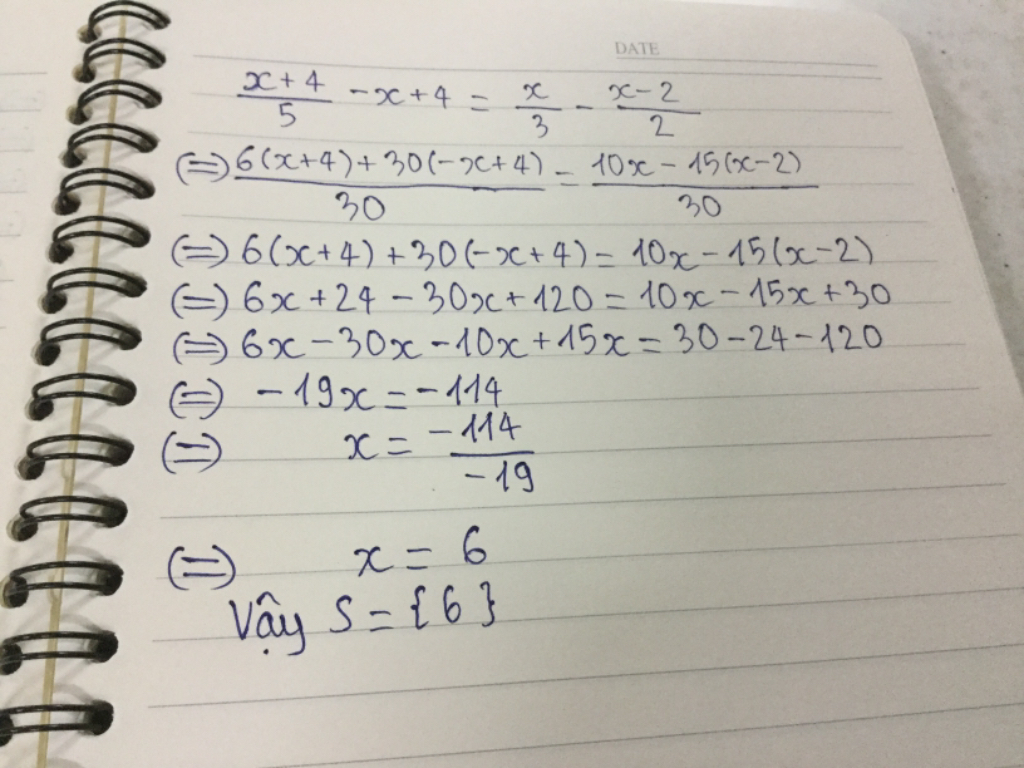 DATE
(x+4)/5 - x + 4 = x/3 - (x-2)/2
(=) (6(x+4) + 30(-x+4))/30 = (10x - 15(x-2))/30
(=) 6(x+4) + 30(-x+4) = 10x - 15(x-2)
(=) 6x + 24 - 30x + 120 = 10x - 15x + 30
(=) 6x - 30x - 10x + 15x = 30 - 24 - 120
(=) -19x = -114
(=) x = -114/-19
(=) x = 6
Vậy S = {6}